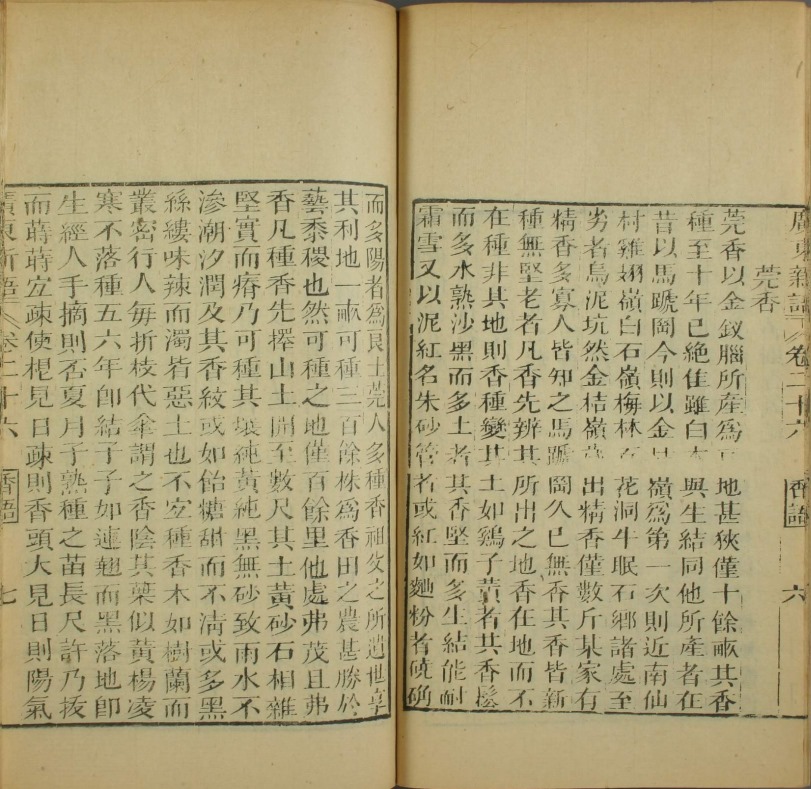 廣東新語 卷二十六 香語 六
莞香
莞香以金釵腦所產為 地甚狹僅十餘畝其香
種至十年已絕佳雖白木與生結同他所產者在
昔以馬蹏岡今則以金 嶺為第一次則近南仙
村雞翅嶺白石嶺梅林 花洞牛眠石鄉諸處至
劣者烏泥坑然金桔嶺 出精香僅數斤某家有
精香多寡人皆知之馬蹏岡久已無香其香皆新
種無堅老者凡香先辨其所出之地香在地而不
在種非其地則香種變其土如鷄子黃者其香鬆
而多水熟沙黑而多土者其香堅而多生結能耐
霜雪又以泥紅名朱砂管者或紅如麯粉者磽确
而多陽者為艮土莞人多種香祖父之所遺世享
其利地一畝可種三百餘株為香田之農甚勝於
藝黍稷也然可種之地僅百餘里他處弗茂且弗
香凡種香先擇山土開至數尺其土黃砂石相雜
堅實而瘠乃可種其壤純黃純黑無砂致雨水不
滲潮汐潤及其香紋或如飴糖甜而不清或多黑
絲縷味辣而濁皆惡土也不宜種香木如樹蘭而
叢密行人每折枝代傘謂之香陰其葉似黃楊凌
寒不落種五六年即結子子如連翹而黑落地即
生經人手摘則否夏月子熟種之苗長尺許乃拔
而蒔蒔宜疎使根見日疎則香頭大見日則陽氣
廣東新語 卷二十六 香語 七